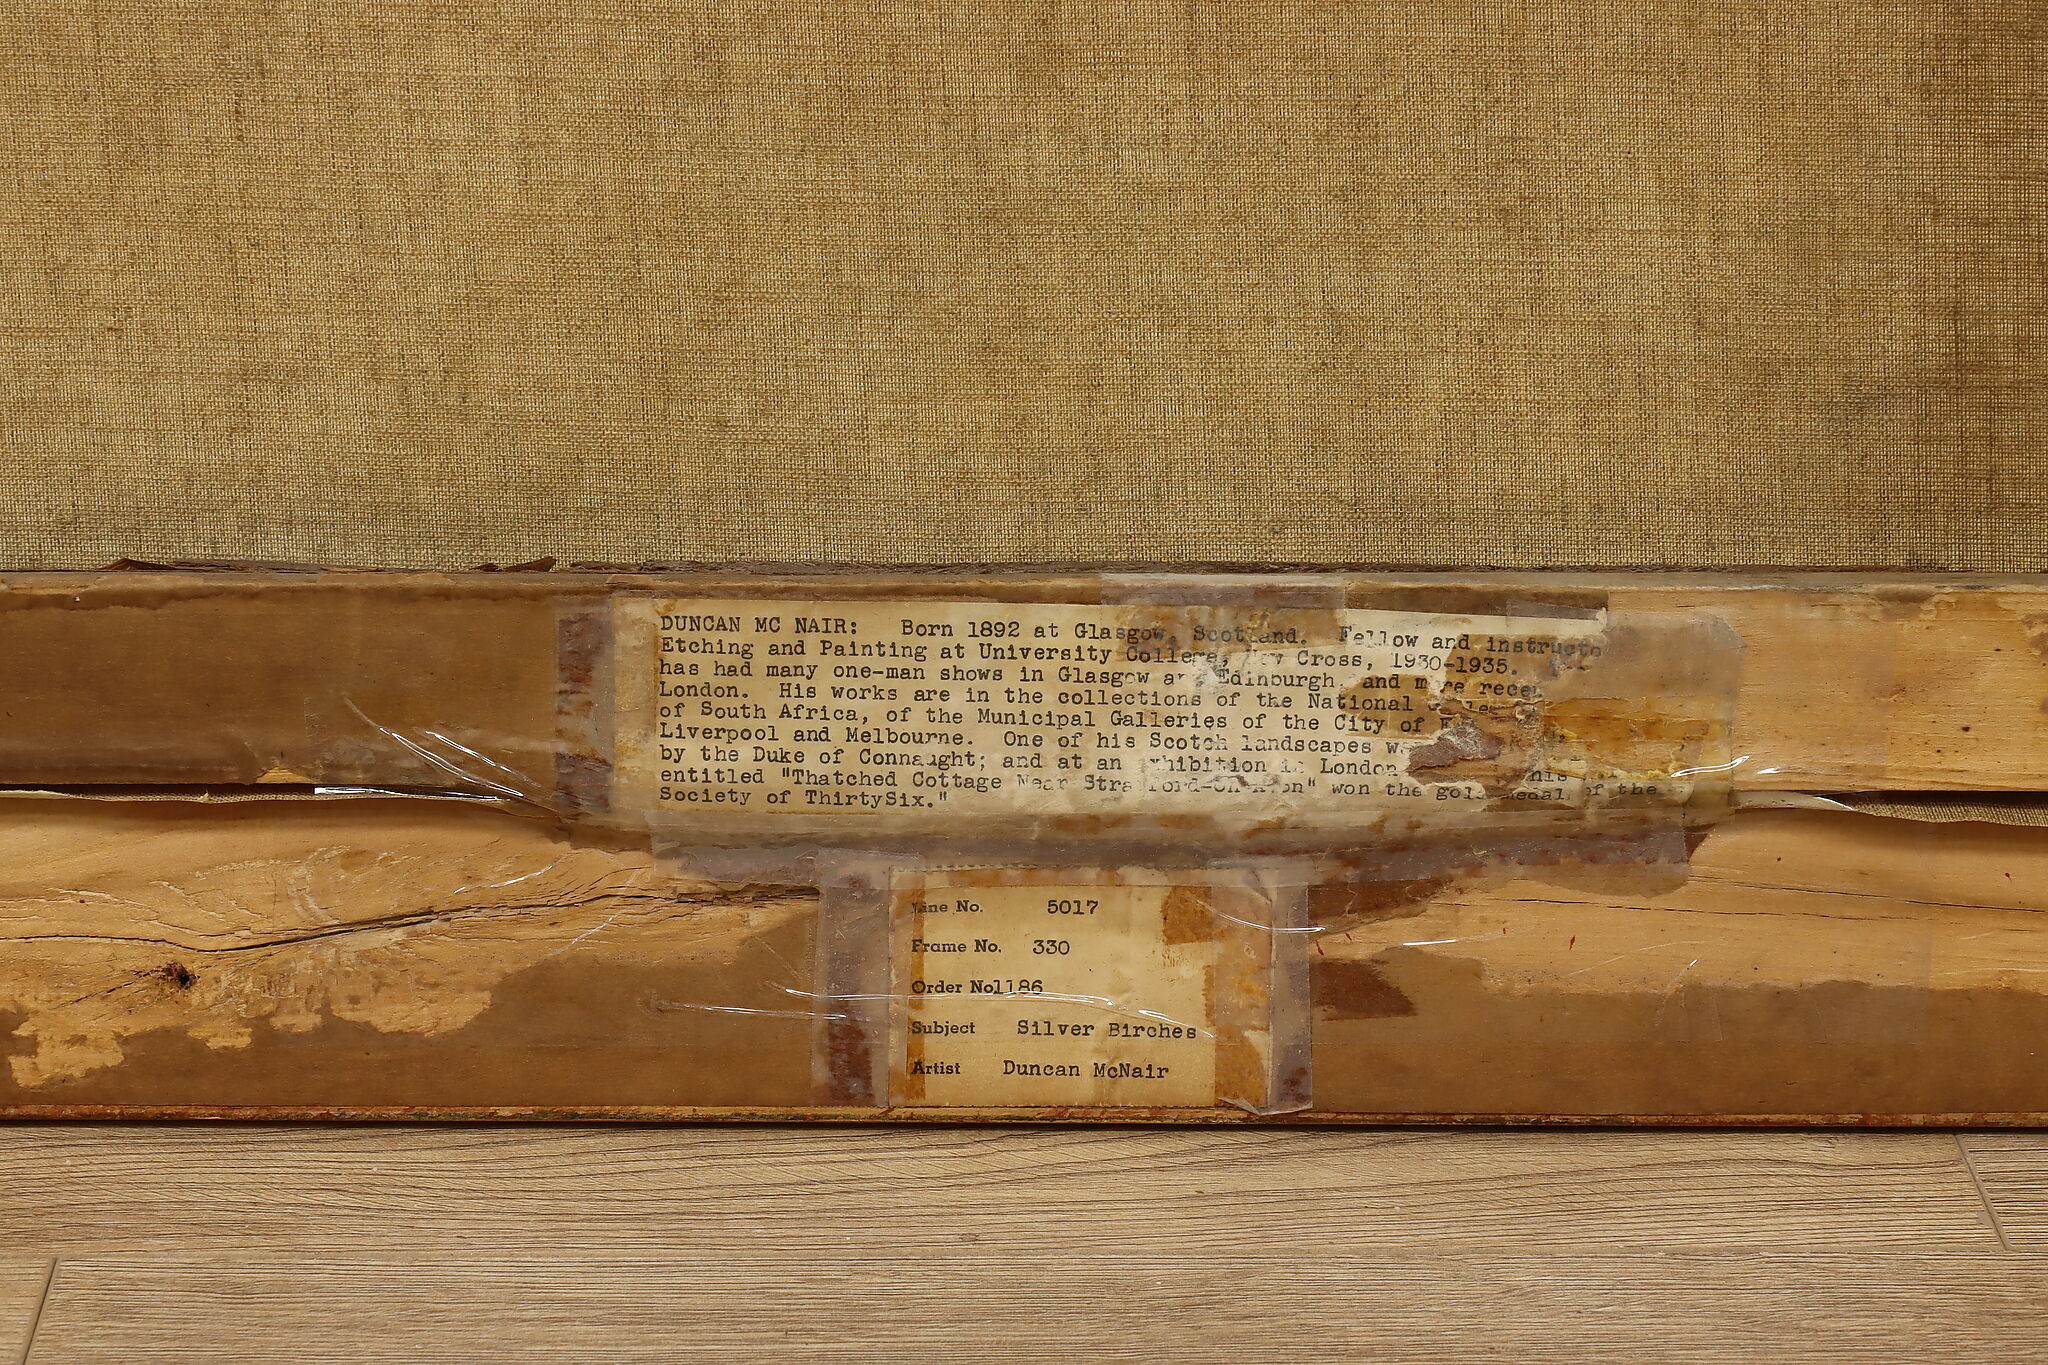 DUNCAN MC NAIR: Born 1892 at Glasgow, Scotland. Fellow and instructo
Etching and Painting at University College, New Cross, 1930-1935.
has had many one-man shows in Glasgow and Edinburgh, and more recen
London. His works are in the collections of the National
of South Africa, of the Municipal Galleries of the City of
Liverpool and Melbourne. One of his Scotch landscapes
by the Duke of Connaught; and at an exhibition in London his
entitled "Thatched Cottage Near Stratford-On-Avon" won the gold medal of the
Society of ThirtySix."
Line No. 5017
Frame No. 330
Order No.1186
Subject Silver Birches
Artist Duncan McNair